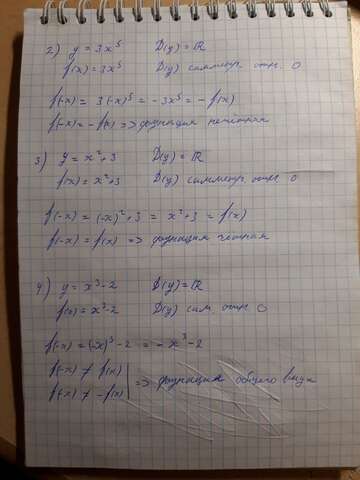 2) y = 3x⁵ D(y) = ℝ
f(x) = 3x⁵ D(y) симметр. отн. 0
f(-x) = 3(-x)⁵ = -3x⁵ = -f(x)
f(-x) = -f(x) => функция нечётная
3) y = x²+3 D(y) = ℝ
f(x) = x²+3 D(y) симметр. отн. 0
f(-x) = (-x)²+3 = x²+3 = f(x)
f(-x) = f(x) => функция чётная
4) y = x³-2 D(y) = ℝ
f(x) = x³-2 D(y) сим. отн. 0
f(-x) = (-x)³-2 = -x³-2
f(-x) ≠ f(x)
f(-x) ≠ -f(x) | => функция общего вида